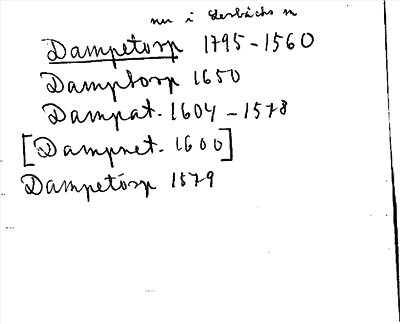 nu i Lerbäcks sn
Dampetorp 1795-1560
Damptorp 1650
Dampat. 1604-1578
[Dampnet. 1600]
Dampetorp 1579